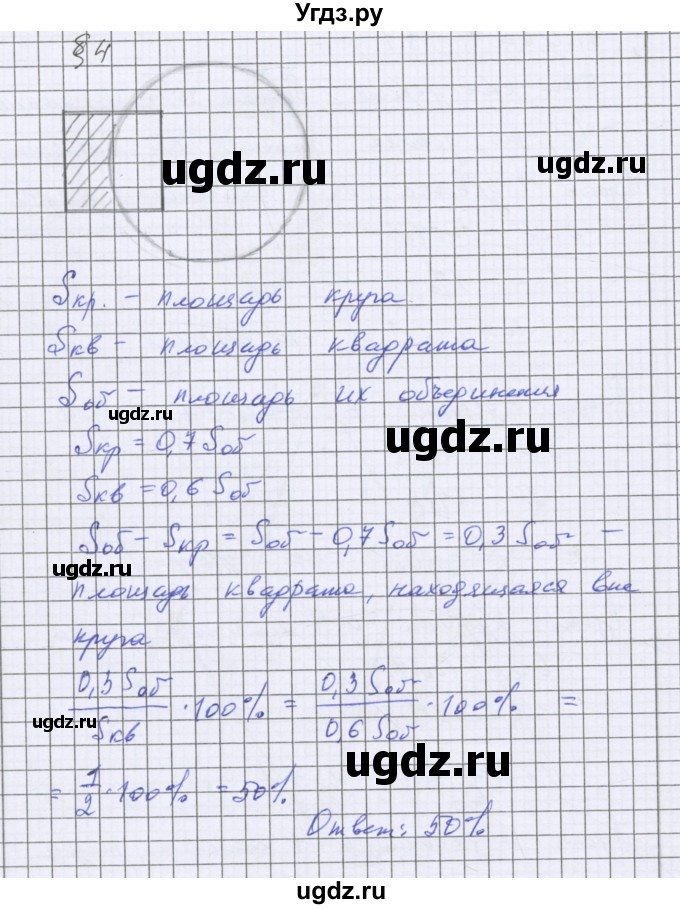 Угдз.ру
§ 4
ugdz.ru
ugdz.ru
Sкр. – площадь круга.
Sкв – площадь квадрата
Sоб – площадь их объединения
ugdz.ru
Sкр = 0,7 Sоб
ugdz.ru
Sкв = 0,6 Sоб
Sоб – Sкр = Sоб – 0,7 Sоб = 0,3 Sоб –
ugdz.ru
площадь квадрата, находящаяся вне
круга
0,3 Sоб / Sкв · 100% = 0,3 Sоб / 0,6 Sоб · 100% =
ugdz.ru
ugdz.ru
= 1/2 · 100% = 50%
Ответ: 50%
ugdz.ru